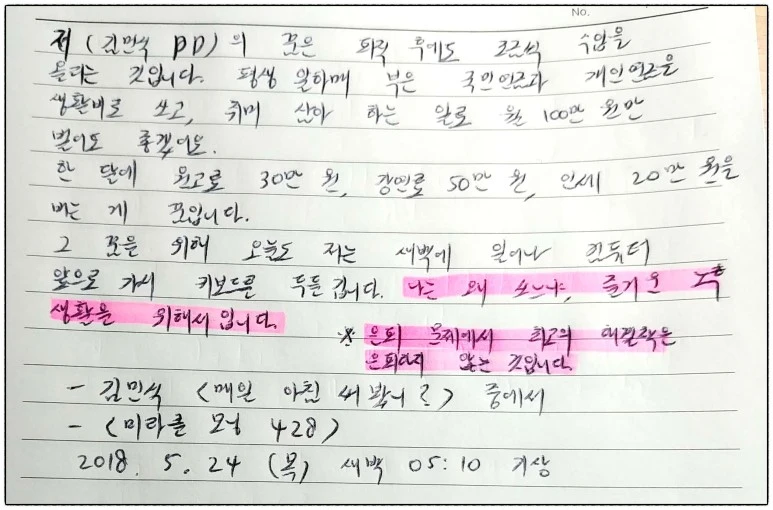 No.
저 (김민식 PD)의 꿈은 퇴직 후에도 조금씩 수입을
올리는 것입니다. 평생 일하며 부은 국민연금과 개인연금을
생활비로 쓰고, 취미 삼아 하는 일로 월 100만 원만
벌어도 좋겠어요.
한 달에 원고료 30만 원, 강연료 50만 원, 인세 20만 원을
버는 게 꿈입니다.
그 꿈을 위해 오늘도 저는 새벽에 일어나 컴퓨터
앞으로 가서 키보드를 두들깁니다. 나는 왜 쓰느냐, 즐거운 노후
생활을 위해서입니다.
※ 은퇴 문제에서 최고의 해결책은
은퇴하지 않는 것입니다.
- 김민식 <매일 아침 써봤니?> 중에서
- <미라클 모닝 428>
2018. 5. 24 (목) 새벽 05:10 기상